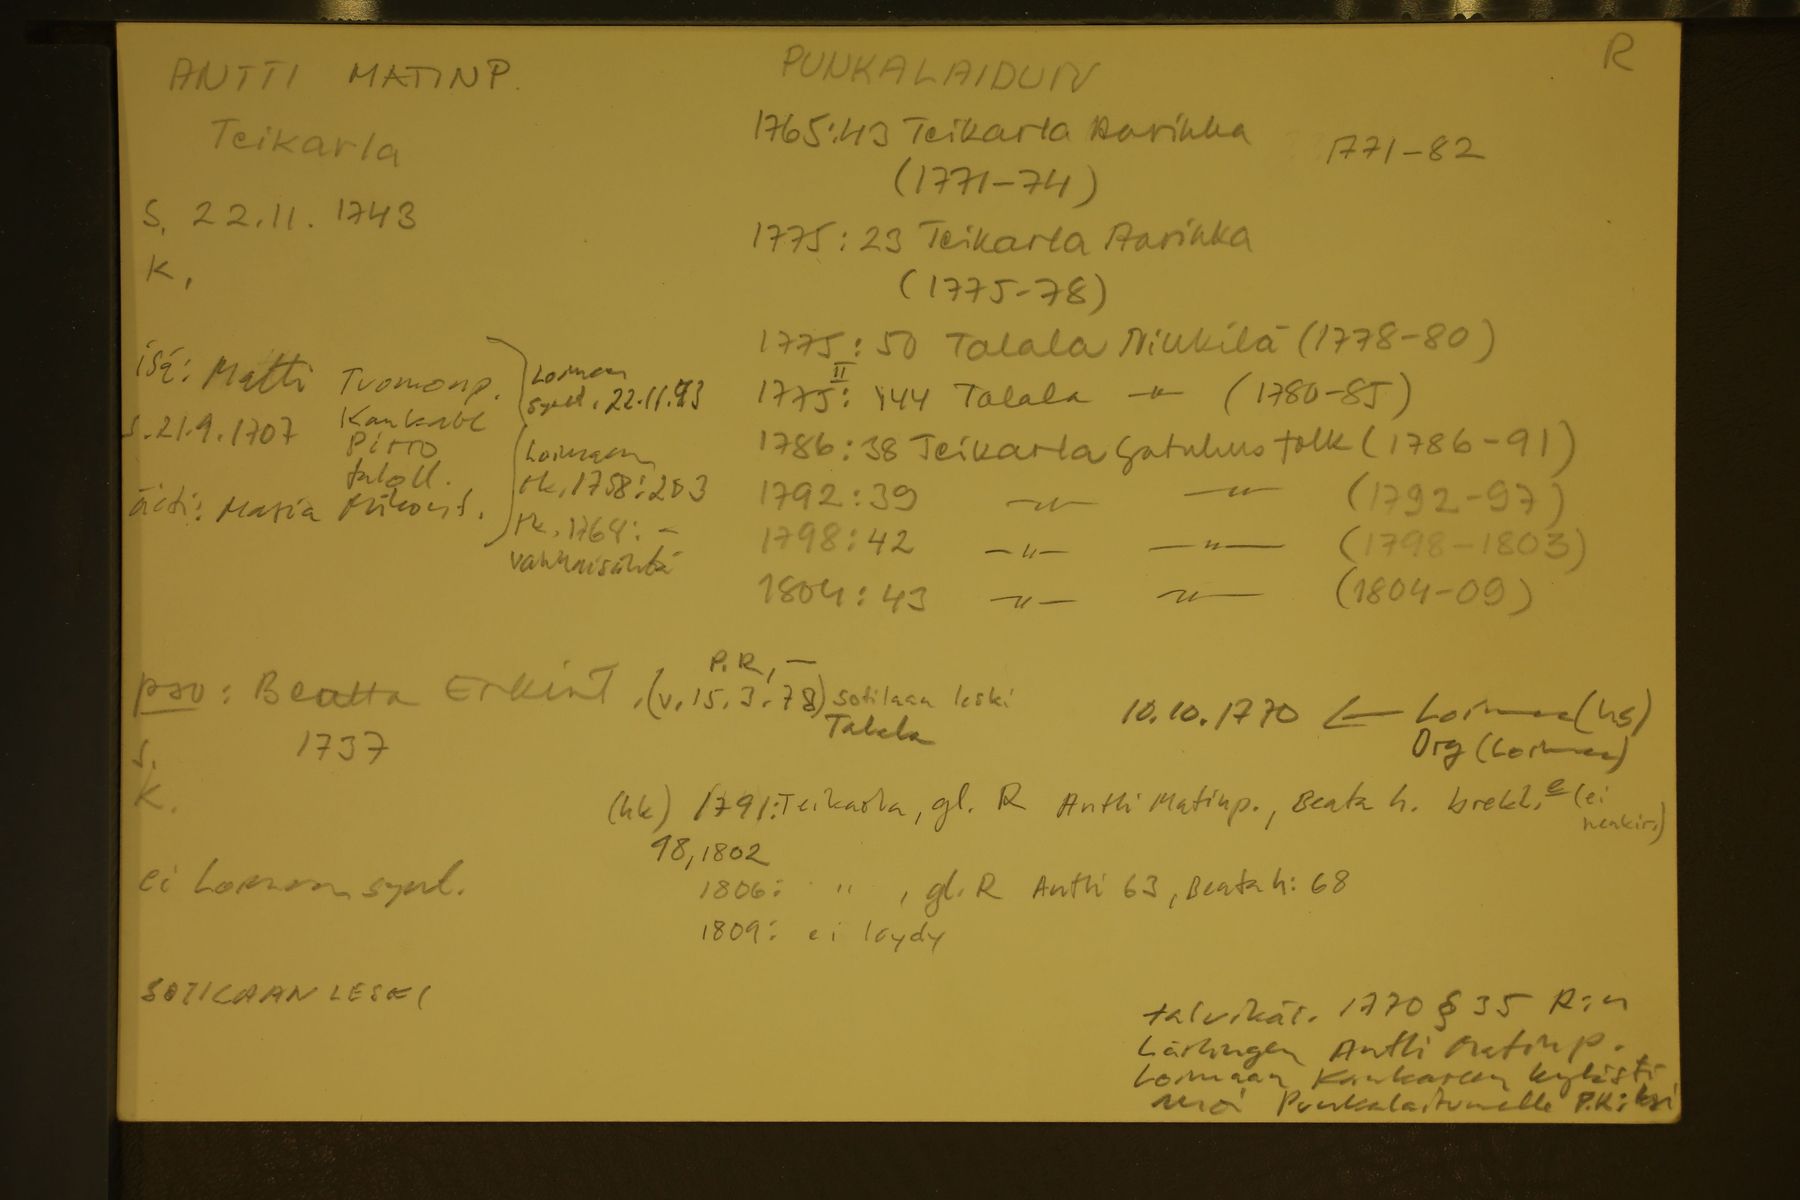 ANTTI MATINP.
Teikarla
S. 22.11. 1743
K.
isä: Matti Tuomonp.
s. 21.9.1707 Kankare
Pirro
taloll.
äiti: Maria
Loimaan
synt. 22.11.43
Loimaan
rk. 1758:203
rk. 1764: -
vaihtaisähtä
PUNKALAIDUN
R
1765:43 Teikarla Aarikka
1771-82
(1771-74)
1775:23 Teikarla Aarikka
(1775-78)
1775:50 Talala Niukilä (1778-80)
1775:II 144 Talala -"- (1780-85)
1786:38 Teikarla Gatuhus folk (1786-91)
1792:39 -"- -"- (1792-97)
1798:42 -"- -"- (1798-1803)
1804:43 -"- -"- (1804-09)
P.R, -
pso: Beatta Erkint. (v. 15.3.78) sotilaan leski
Talala
S. 1737
K.
10.10.1770 ← Loimaa (hs)
Org (Loimaa)
(hk) 1791: Teikarla, gl. R Antti Matinp., Beata h. (ei
henkir.)
98, 1802
1806: " , gl. R Antti 63, Beata h: 68
1809: ei löydy
ei Loimaan synt.
SOTILAAN LESKI
talvikär. 1770 § 35 R:n
Antti Matinp.
Loimaan Kankareen kylästä
Punkalaitumelle P.K:ksi